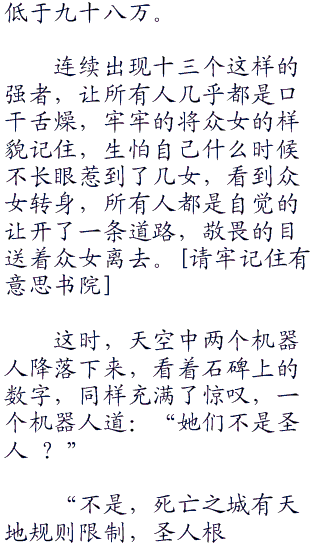 低于九十八万。
连续出现十三个这样的
强者，让所有人几乎都是口
干舌燥，牢牢的将众女的样
貌记住，生怕自己什么时候
不长眼惹到了几女，看到众
女转身，所有人都是自觉的
让开了一条道路，敬畏的目
送着众女离去。[请牢记住有
意思书院]
这时，天空中两个机器
人降落下来，看着石碑上的
数字，同样充满了惊叹，一
个机器人道：“她们不是圣
人 ？”
“不是，死亡之城有天
地规则限制，圣人根